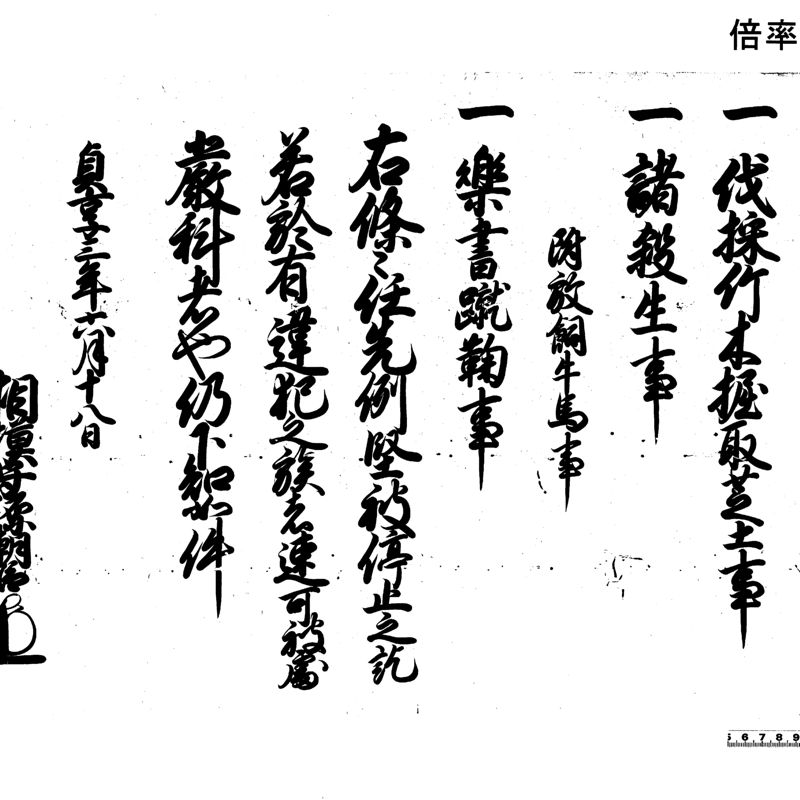 倍率
一 伐採竹木掘取芝土事
一 諸殺生事
附放飼牛馬事
一 樂書蹴鞠事
右條々任先例堅被停止之訖
若於有違犯之族者速可被處
嚴科者也仍下知如件
貞享三年六月十八日
相模守藤朝臣
5 6 7 8 9